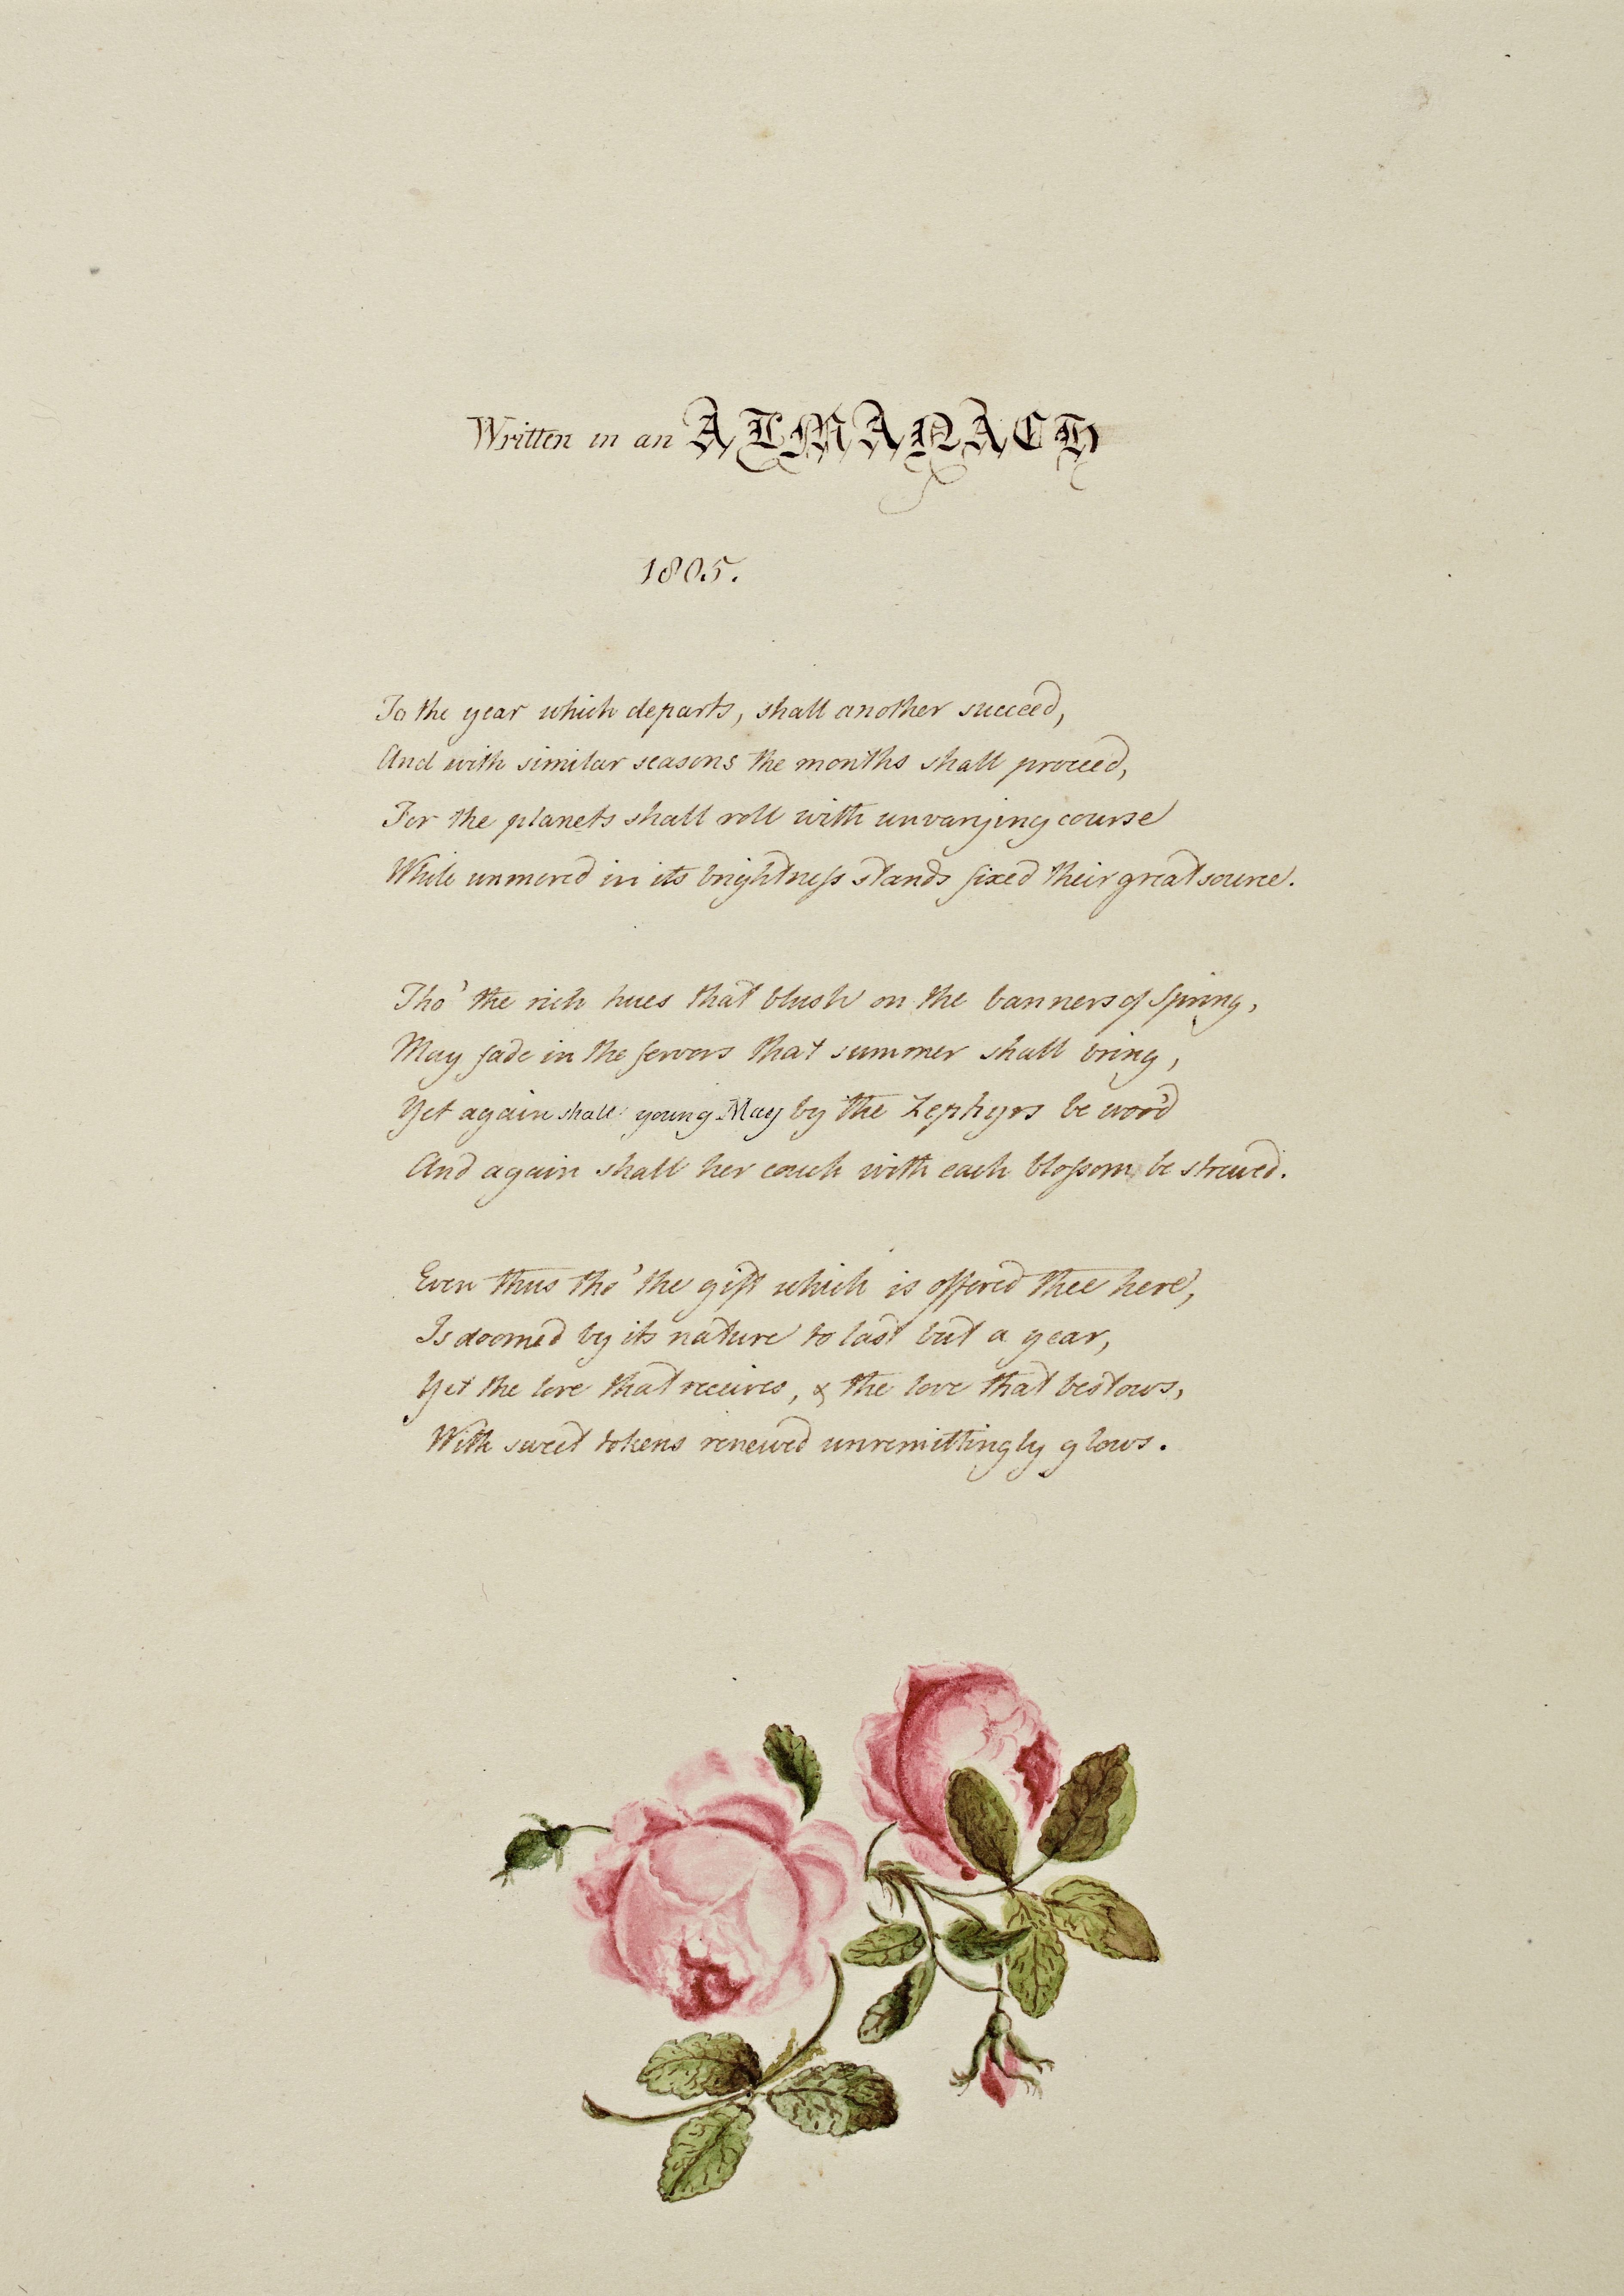 Written in an ALMANACH
1805.
To the year which departs, shall another succeed,
And with similar seasons the months shall proceed,
For the planets shall roll with unvarying course
While unmoved in its brightness stands fixed their great source.
Tho' the rich hues that blush on the banners of Spring,
May fade in the fervors that summer shall bring,
Yet again shall young May by the Zephyrs be woo'd
And again shall her couch with each blossom be strewed.
Even thus tho' the gift which is offered thee here,
Is doomed by its nature to last but a year,
Yet the love that receives, & the love that bestows,
With sweet tokens renewed unremittingly glows.